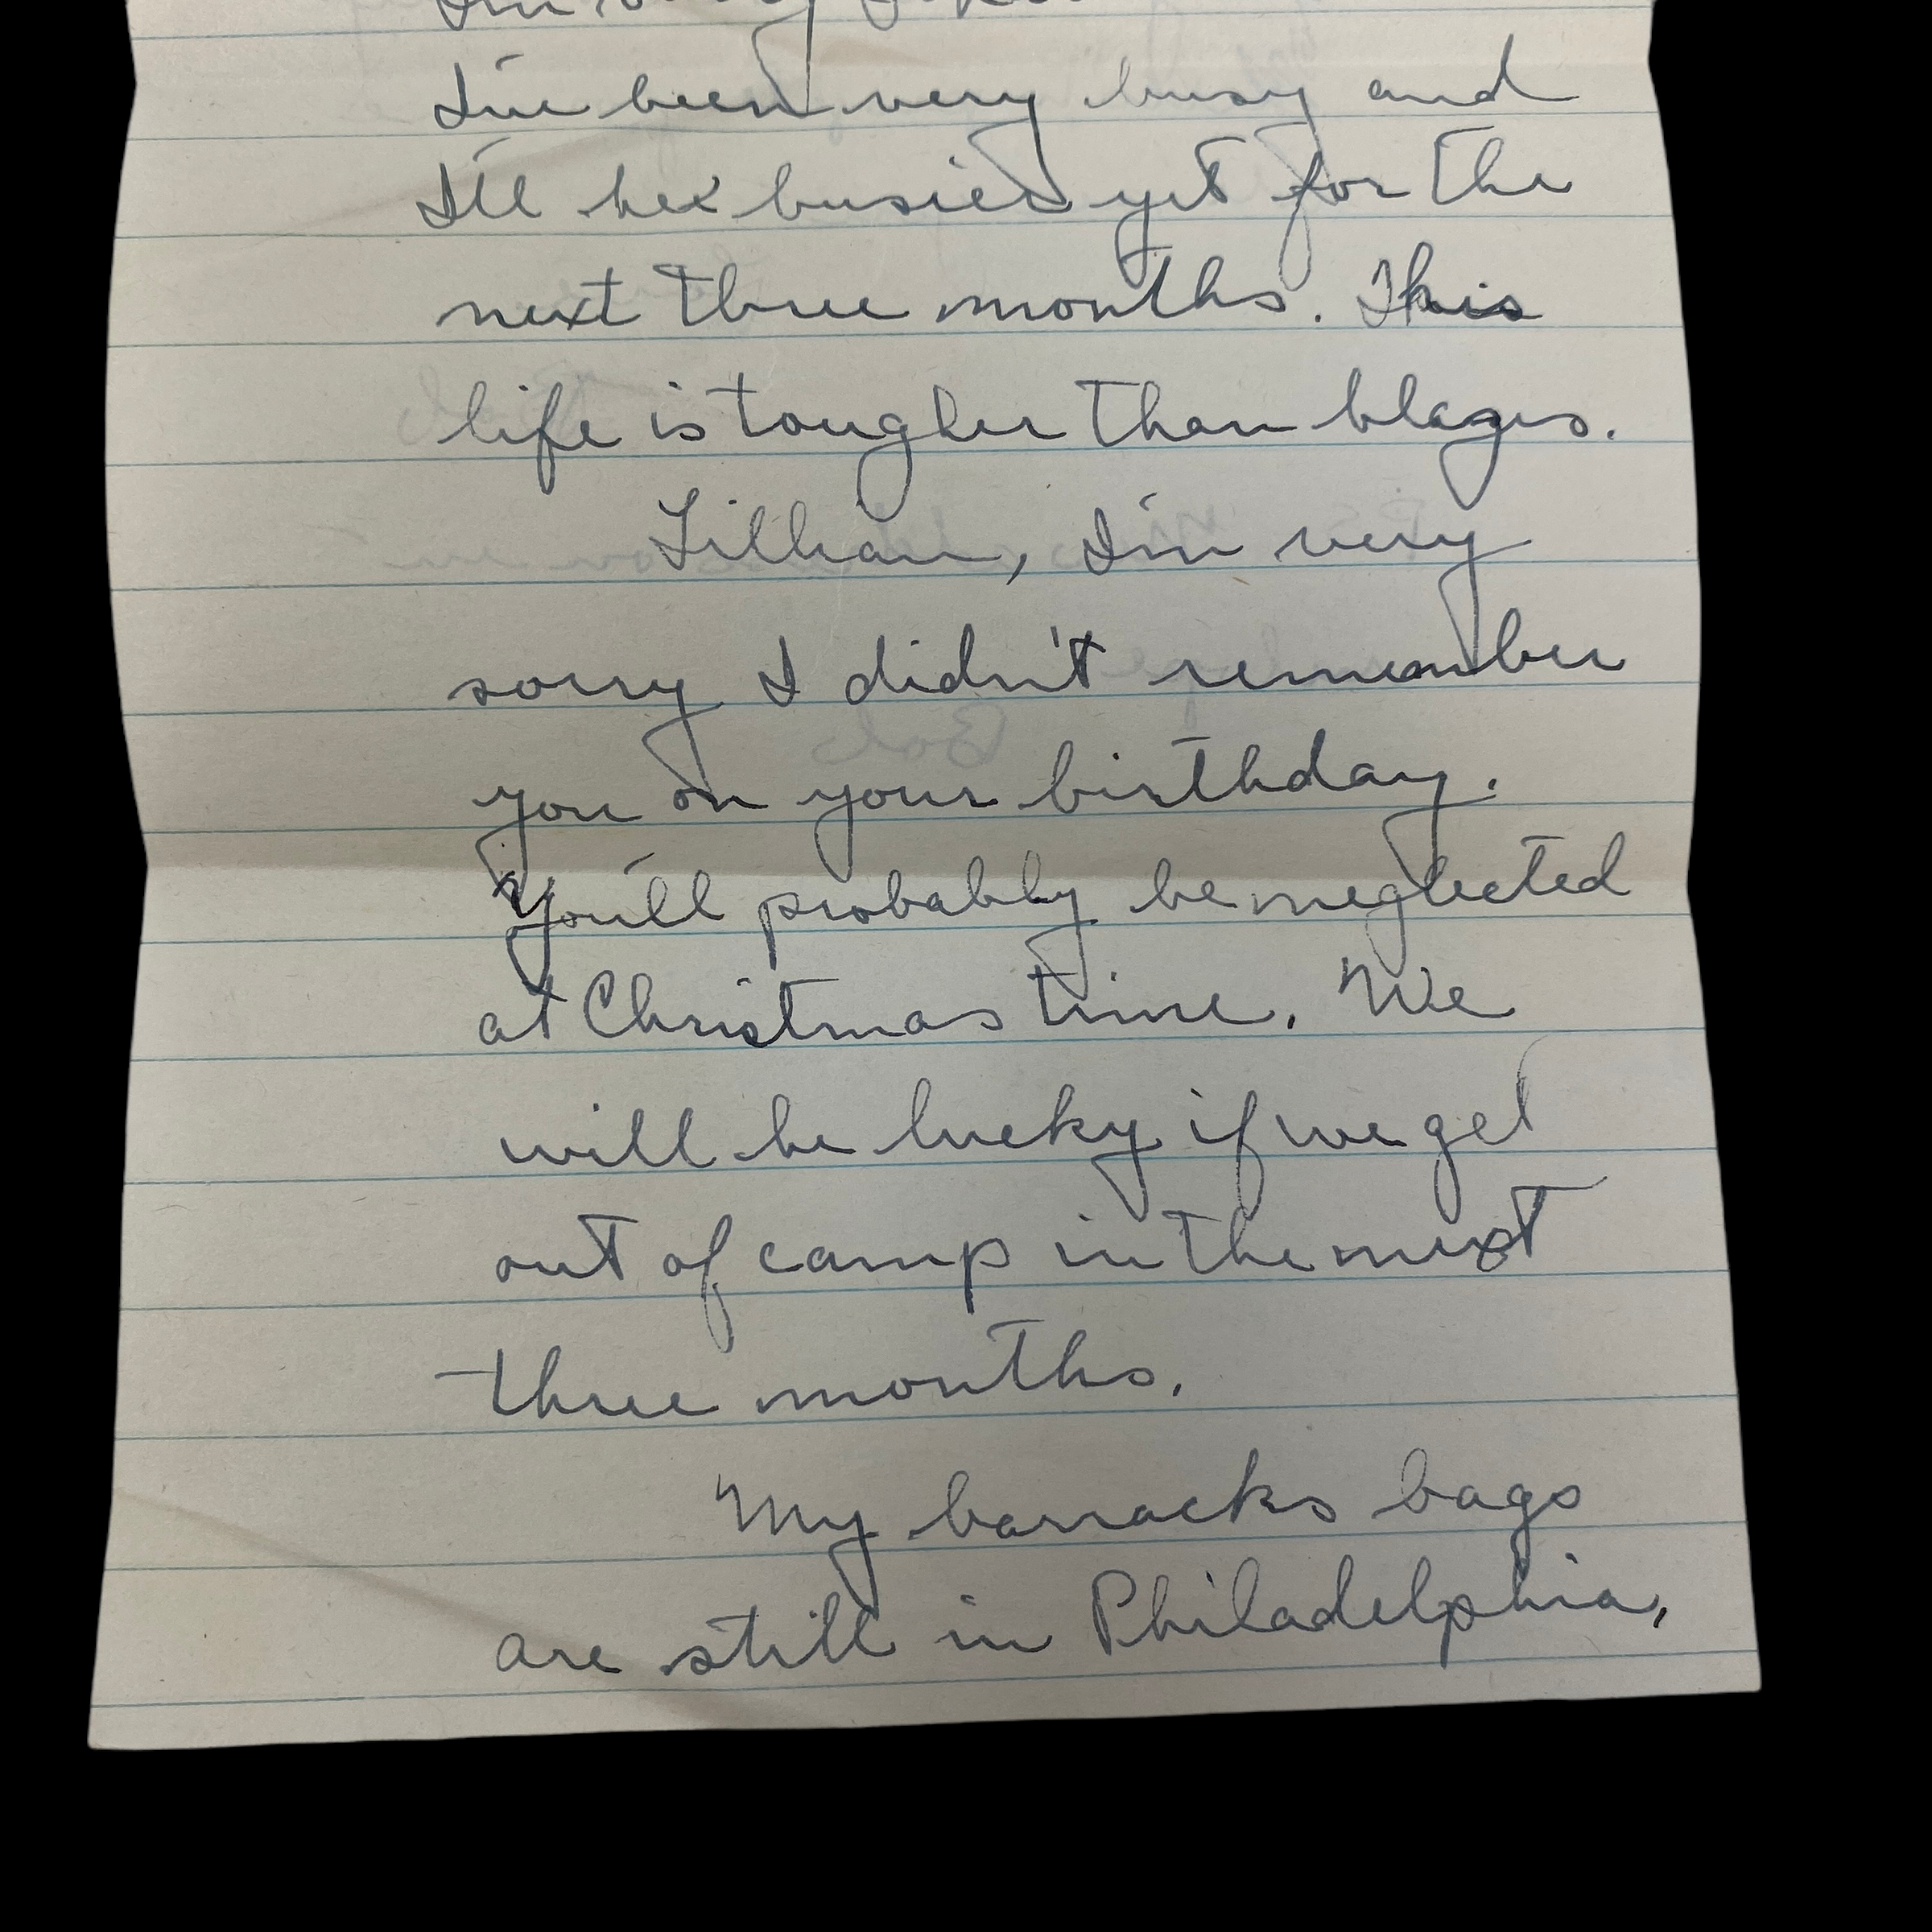 I'm
I've been very busy and
I'll be busier yet for the
next three months. This
life is tougher than blazes.
Lillian, I'm very
sorry I didn't remember
you on your birthday.
You'll probably be neglected
at Christmas time. We
will be lucky if we get
out of camp in the next
three months.
My barracks bags
are still in Philadelphia,